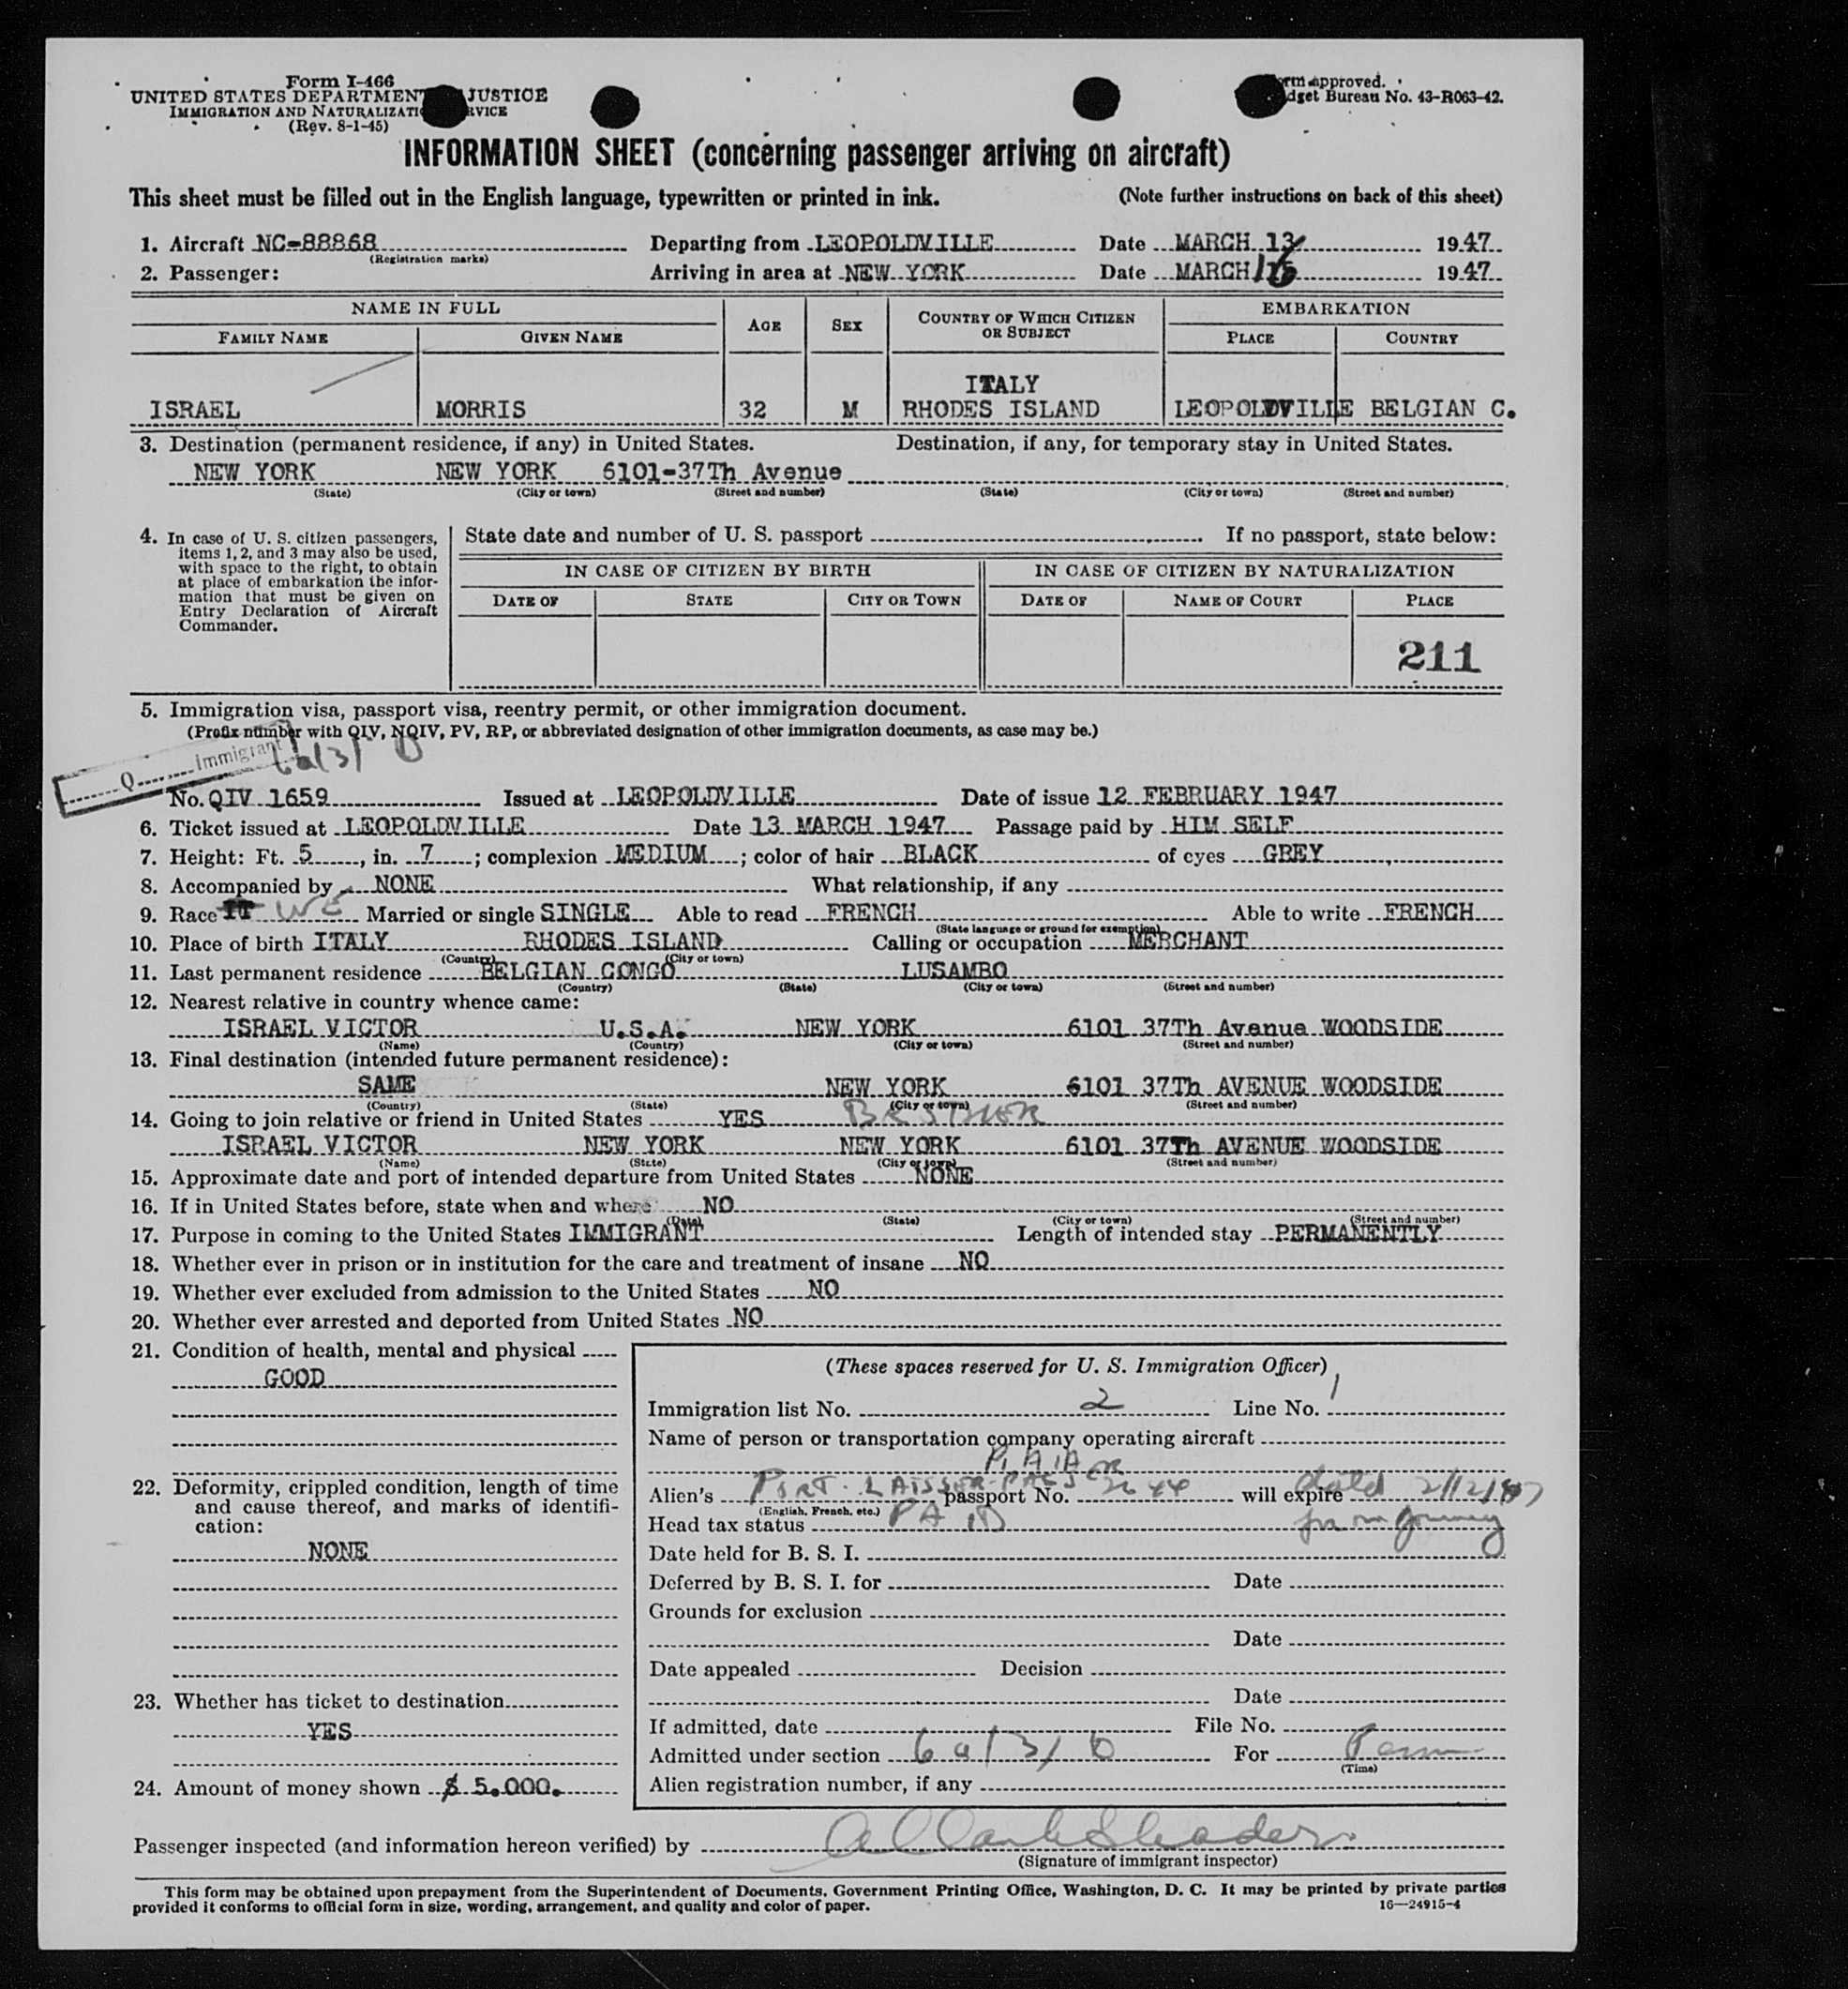 Form I-466
UNITED STATES DEPARTMENT JUSTICE
IMMIGRATION AND NATURALIZATI RVICE
(Rev. 8-1-45)
rm approved.
dget Bureau No. 43-R063-42.
INFORMATION SHEET (concerning passenger arriving on aircraft)
This sheet must be filled out in the English language, typewritten or printed in ink. (Note further instructions on back of this sheet)
1. Aircraft NC-88868 Departing from LEOPOLDVILLE Date MARCH 13 1947
(Registration marks)
2. Passenger: Arriving in area at NEW YORK Date MARCH 16 1947
NAME IN FULL AGE SEX COUNTRY OF WHICH CITIZEN OR SUBJECT EMBARKATION
FAMILY NAME GIVEN NAME PLACE COUNTRY
ITALY
ISRAEL MORRIS 32 M RHODES ISLAND LEOPOLDVILLE BELGIAN C.
3. Destination (permanent residence, if any) in United States. Destination, if any, for temporary stay in United States.
NEW YORK NEW YORK 6101-37Th Avenue
(State) (City or town) (Street and number) (State) (City or town) (Street and number)
4. In case of U. S. citizen passengers, items 1, 2, and 3 may also be used, with space to the right, to obtain at place of embarkation the information that must be given on Entry Declaration of Aircraft Commander.
State date and number of U. S. passport If no passport, state below:
IN CASE OF CITIZEN BY BIRTH IN CASE OF CITIZEN BY NATURALIZATION
DATE OF STATE CITY OR TOWN DATE OF NAME OF COURT PLACE
211
5. Immigration visa, passport visa, reentry permit, or other immigration document.
(Prefix number with QIV, NQIV, PV, RP, or abbreviated designation of other immigration documents, as case may be.)
Q Immigrant 6a(3) 0
No. QIV 1659 Issued at LEOPOLDVILLE Date of issue 12 FEBRUARY 1947
6. Ticket issued at LEOPOLDVILLE Date 13 MARCH 1947 Passage paid by HIM SELF
7. Height: Ft. 5, in. 7; complexion MEDIUM; color of hair BLACK of eyes GREY
8. Accompanied by NONE What relationship, if any
9. Race WE Married or single SINGLE Able to read FRENCH Able to write FRENCH
(State language or ground for exemption)
10. Place of birth ITALY RHODES ISLAND Calling or occupation MERCHANT
(Country) (City or town)
11. Last permanent residence BELGIAN CONGO LUSAMBO
(Country) (State) (City or town) (Street and number)
12. Nearest relative in country whence came:
ISRAEL VICTOR U.S.A. NEW YORK 6101 37Th Avenue WOODSIDE
(Name) (Country) (City or town) (Street and number)
13. Final destination (intended future permanent residence):
SAME NEW YORK 6101 37Th AVENUE WOODSIDE
(Country) (State) (City or town) (Street and number)
14. Going to join relative or friend in United States YES BROTHER
ISRAEL VICTOR NEW YORK NEW YORK 6101 37Th AVENUE WOODSIDE
(Name) (State) (City or town) (Street and number)
15. Approximate date and port of intended departure from United States NONE
16. If in United States before, state when and where NO
(Date) (State) (City or town) (Street and number)
17. Purpose in coming to the United States IMMIGRANT Length of intended stay PERMANENTLY
18. Whether ever in prison or in institution for the care and treatment of insane NO
19. Whether ever excluded from admission to the United States NO
20. Whether ever arrested and deported from United States NO
21. Condition of health, mental and physical
GOOD
22. Deformity, crippled condition, length of time and cause thereof, and marks of identification:
NONE
23. Whether has ticket to destination
YES
24. Amount of money shown $ 5.000.
(These spaces reserved for U. S. Immigration Officer)
Immigration list No. 2 Line No. 1
Name of person or transportation company operating aircraft
P.A.A
Alien's LAISSER-PASSER passport No. 2644 will expire dated 2/12/47
(English, French, etc.)
Head tax status PAID for one journey
Date held for B. S. I.
Deferred by B. S. I. for Date
Grounds for exclusion
Date
Date appealed Decision
Date
If admitted, date File No.
Admitted under section 6a/3/0 For Perm
(Time)
Alien registration number, if any
Passenger inspected (and information hereon verified) by
(Signature of immigrant inspector)
This form may be obtained upon prepayment from the Superintendent of Documents, Government Printing Office, Washington, D. C. It may be printed by private parties
provided it conforms to official form in size, wording, arrangement, and quality and color of paper. 16—24915-4